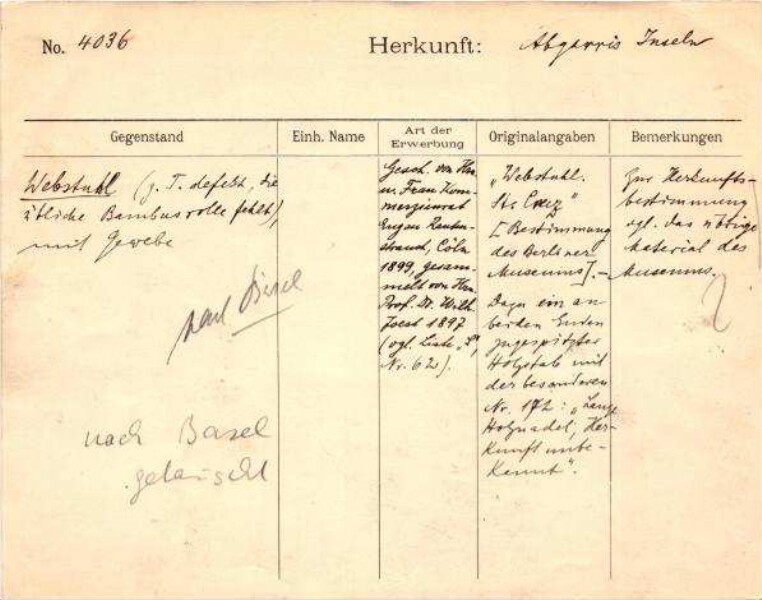 No. 4036 Herkunft: Abgarris Inseln
Gegenstand
Einh. Name
Art der
Erwerbung
Originalangaben
Bemerkungen
Webstuhl (z. T. defekt, die
übliche Bambusrolle fehlt),
mit Gewebe
nach Basel
nach Basel
getauscht
Gesch. von Hrn.
u. Frau Kom-
merzienrat
Eugen Rauten-
strauch, Cöln
1899, gesam-
melt von Hrn.
Prof. Dr. Wilh.
Joest 1897
(vgl. Liste „S",
Nr. 62).
„Webstuhl.
Sta Cruz"
[Bestimmung
des Berliner
Museums]. —
Dazu ein an
beiden Enden
zugespitzter
Holzstab mit
der besonderen
Nr. 172: „Lange
Holznadel; Her-
kunft unbe-
kannt".
Zur Herkunfts-
bestimmung
vgl. das übrige
Material des
Museums.